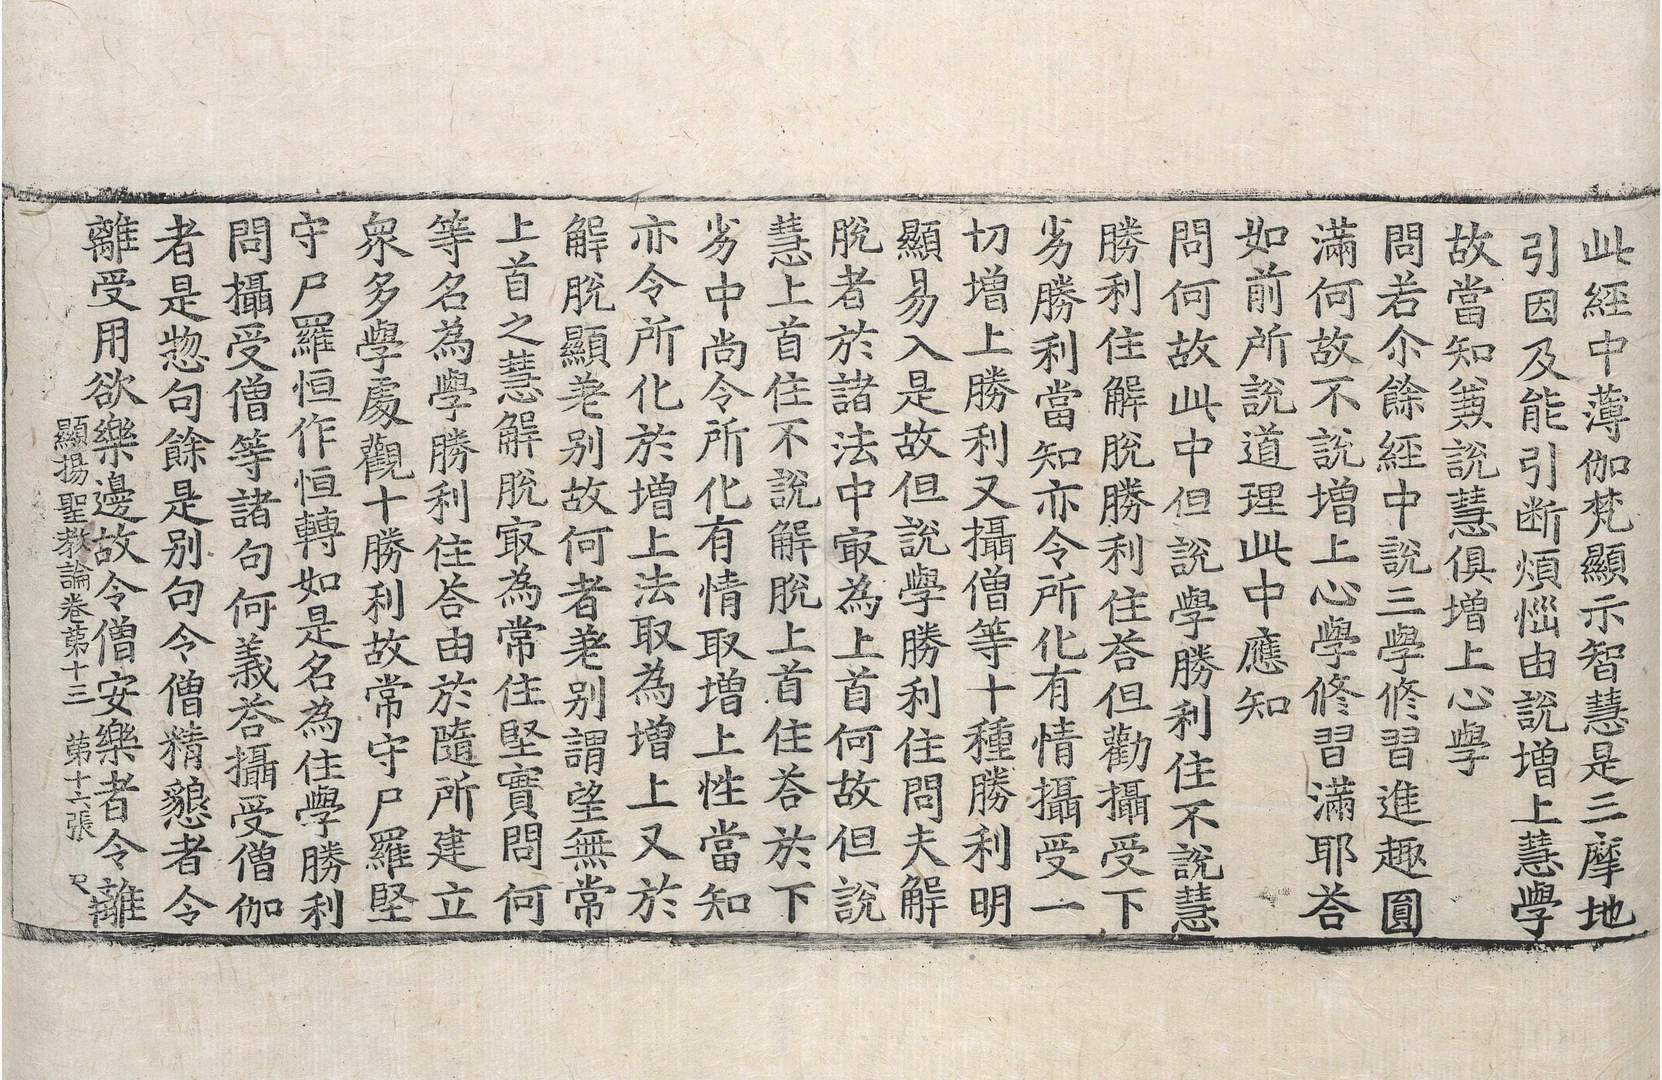 此經中薄伽梵顯示智慧是三摩地
引因及能引断煩惱由說增上慧學
故當知兼說慧俱增上心學
問若尒餘經中說三學修習進趣圓
滿何故不說增上心學修習滿耶荅
如前所說道理此中應知
問何故此中但說學勝利住不說慧
勝利住解脫勝利住荅但勸攝受下
劣勝利當知亦令所化有情攝受一
切增上勝利又攝僧等十種勝利明
顯易入是故但說學勝利住問夫解
脫者於諸法中冣為上首何故但說
慧上首住不說解脫上首住荅於下
劣中尚令所化有情取增上性當知
亦令所化於增上法取為增上又於
解脫顯差别故何者差别謂望無常
上首之慧解脫冣為常住堅實問何
等名為學勝利住荅由於隨所建立
衆多學處觀十勝利故常守尸羅堅
守尸羅恒作恒轉如是名為住學勝利
問攝受僧等諸句何義荅攝受僧伽
者是惣句餘是别句令僧精懇者令
離受用欲樂邊故令僧安樂者令離
顯揚聖教論卷第十三　第十六張